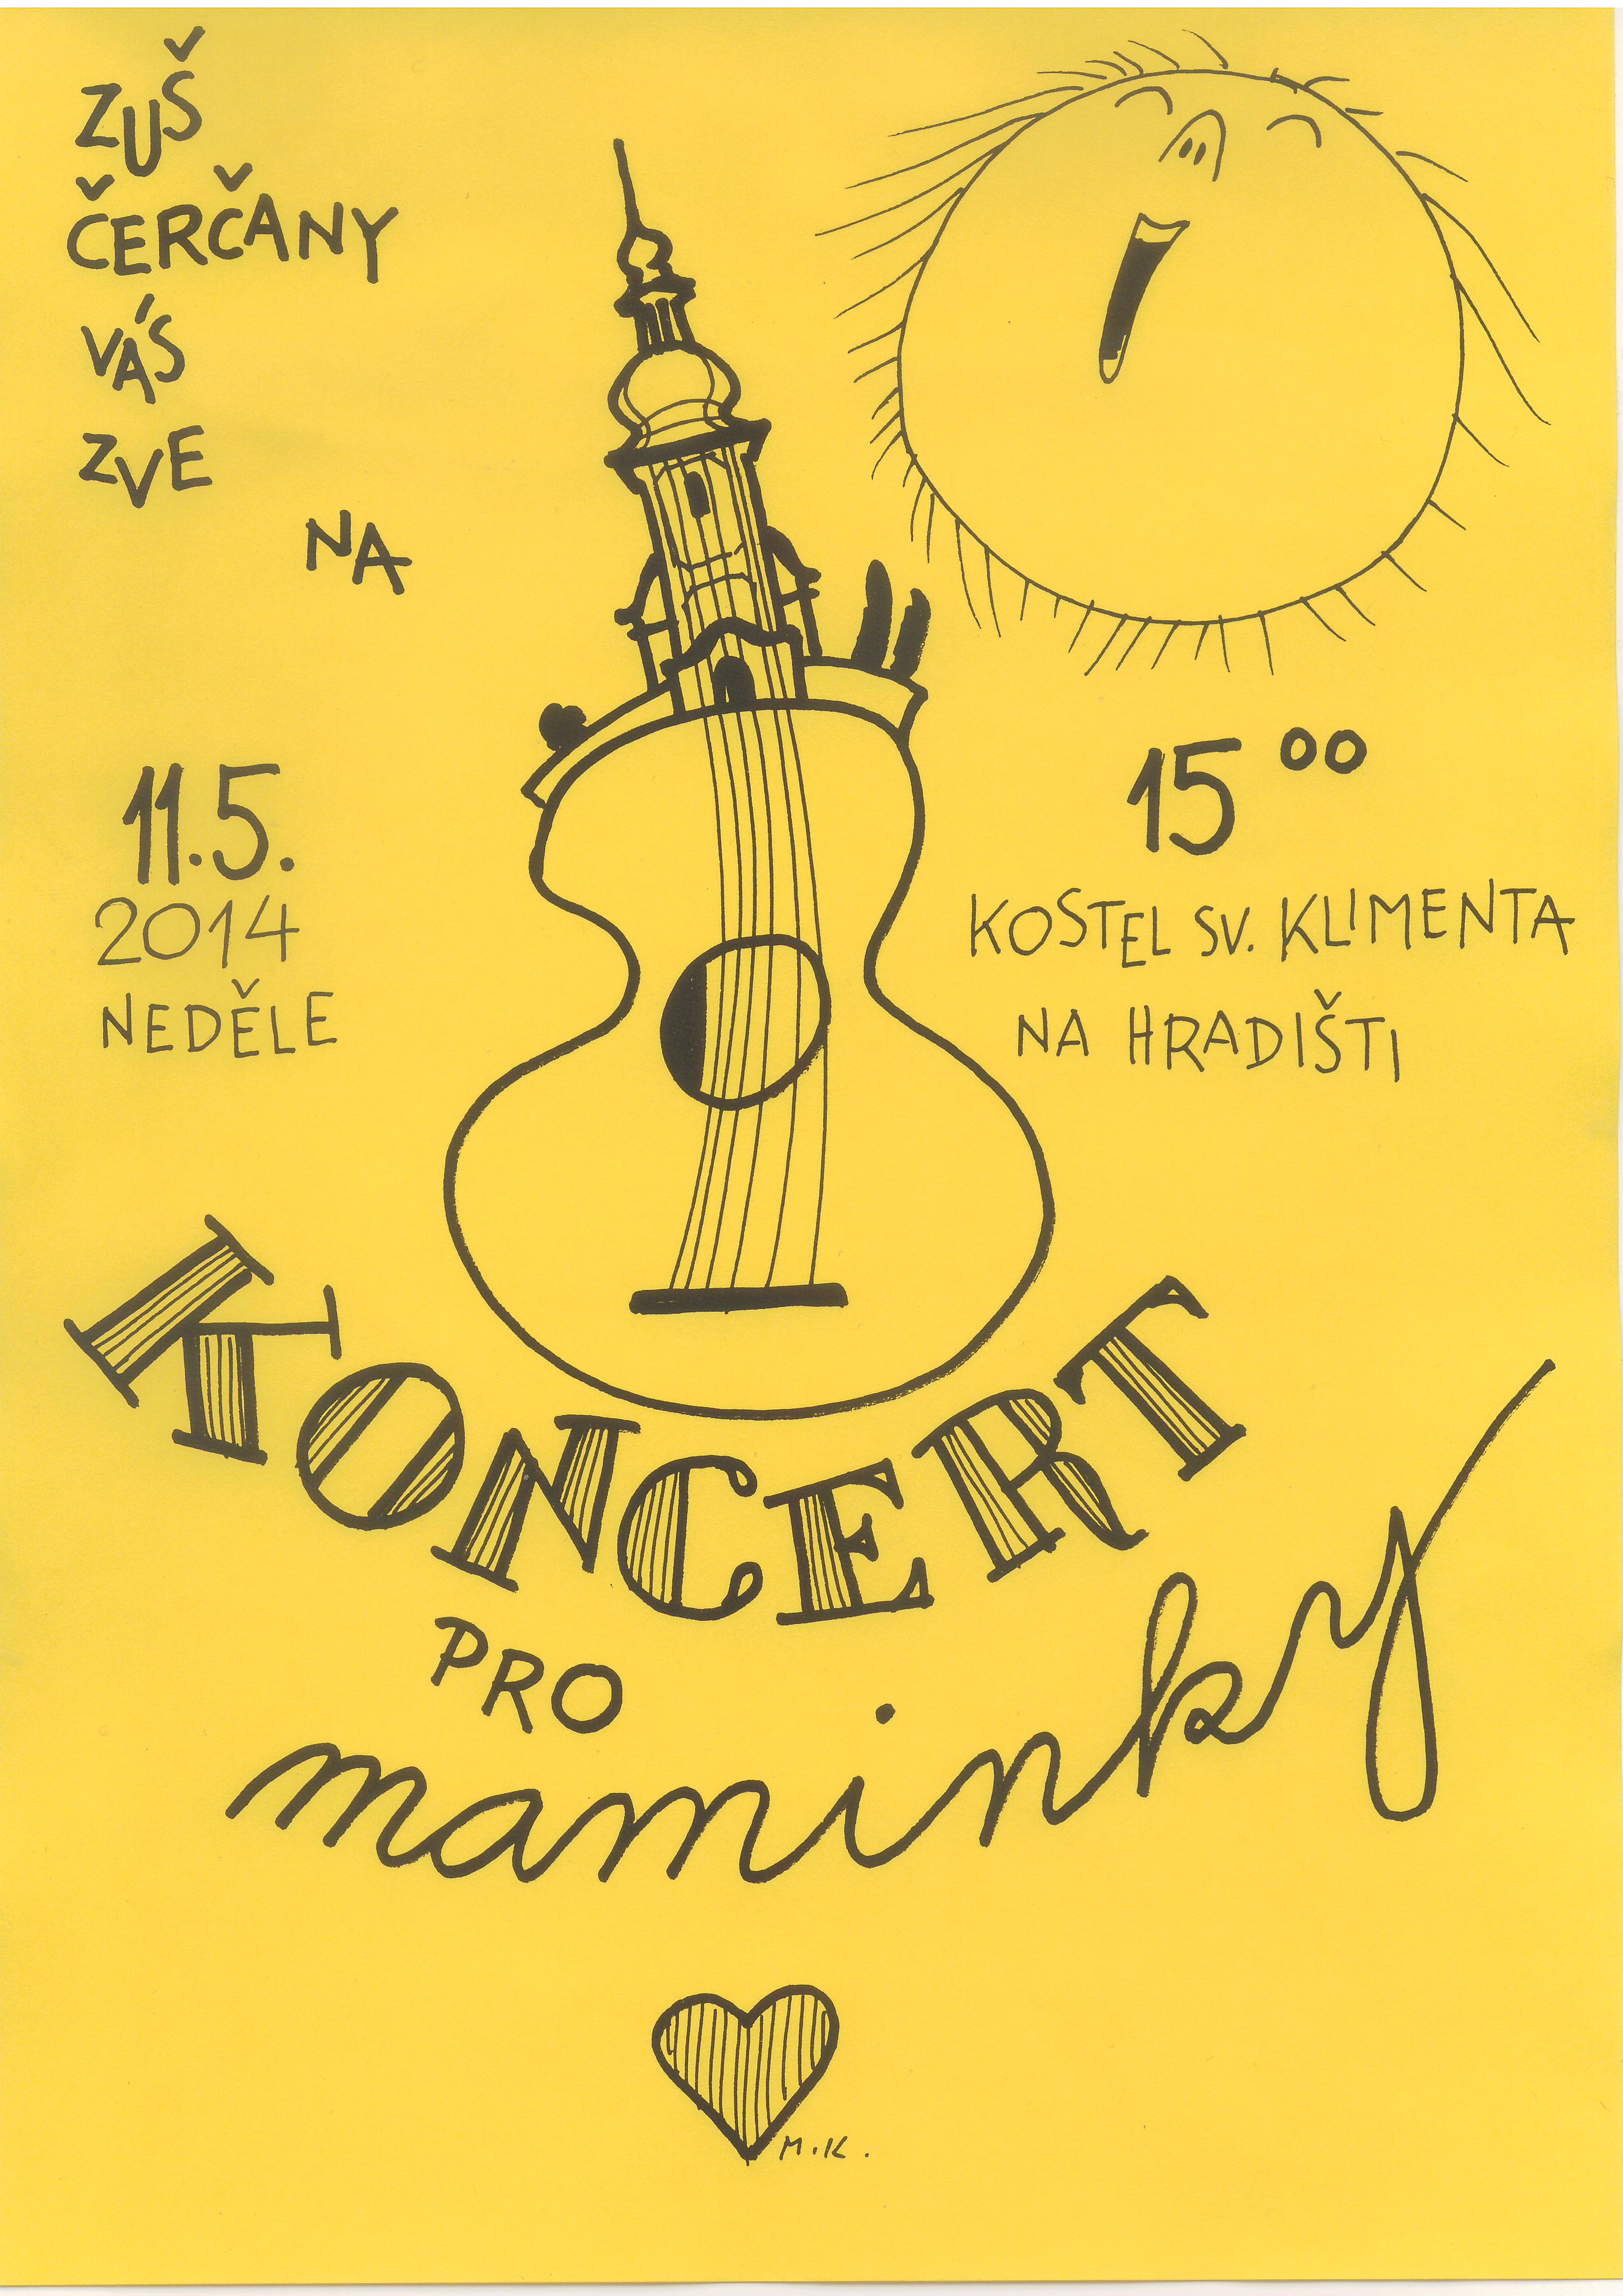 ZUŠ
ČERČANY
VÁS
ZVE
NA
11.5.
2014
NEDĚLE
15 00
KOSTEL SV. KLIMENTA
NA HRADIŠTI
KONCERT
PRO
maminky
M.K.